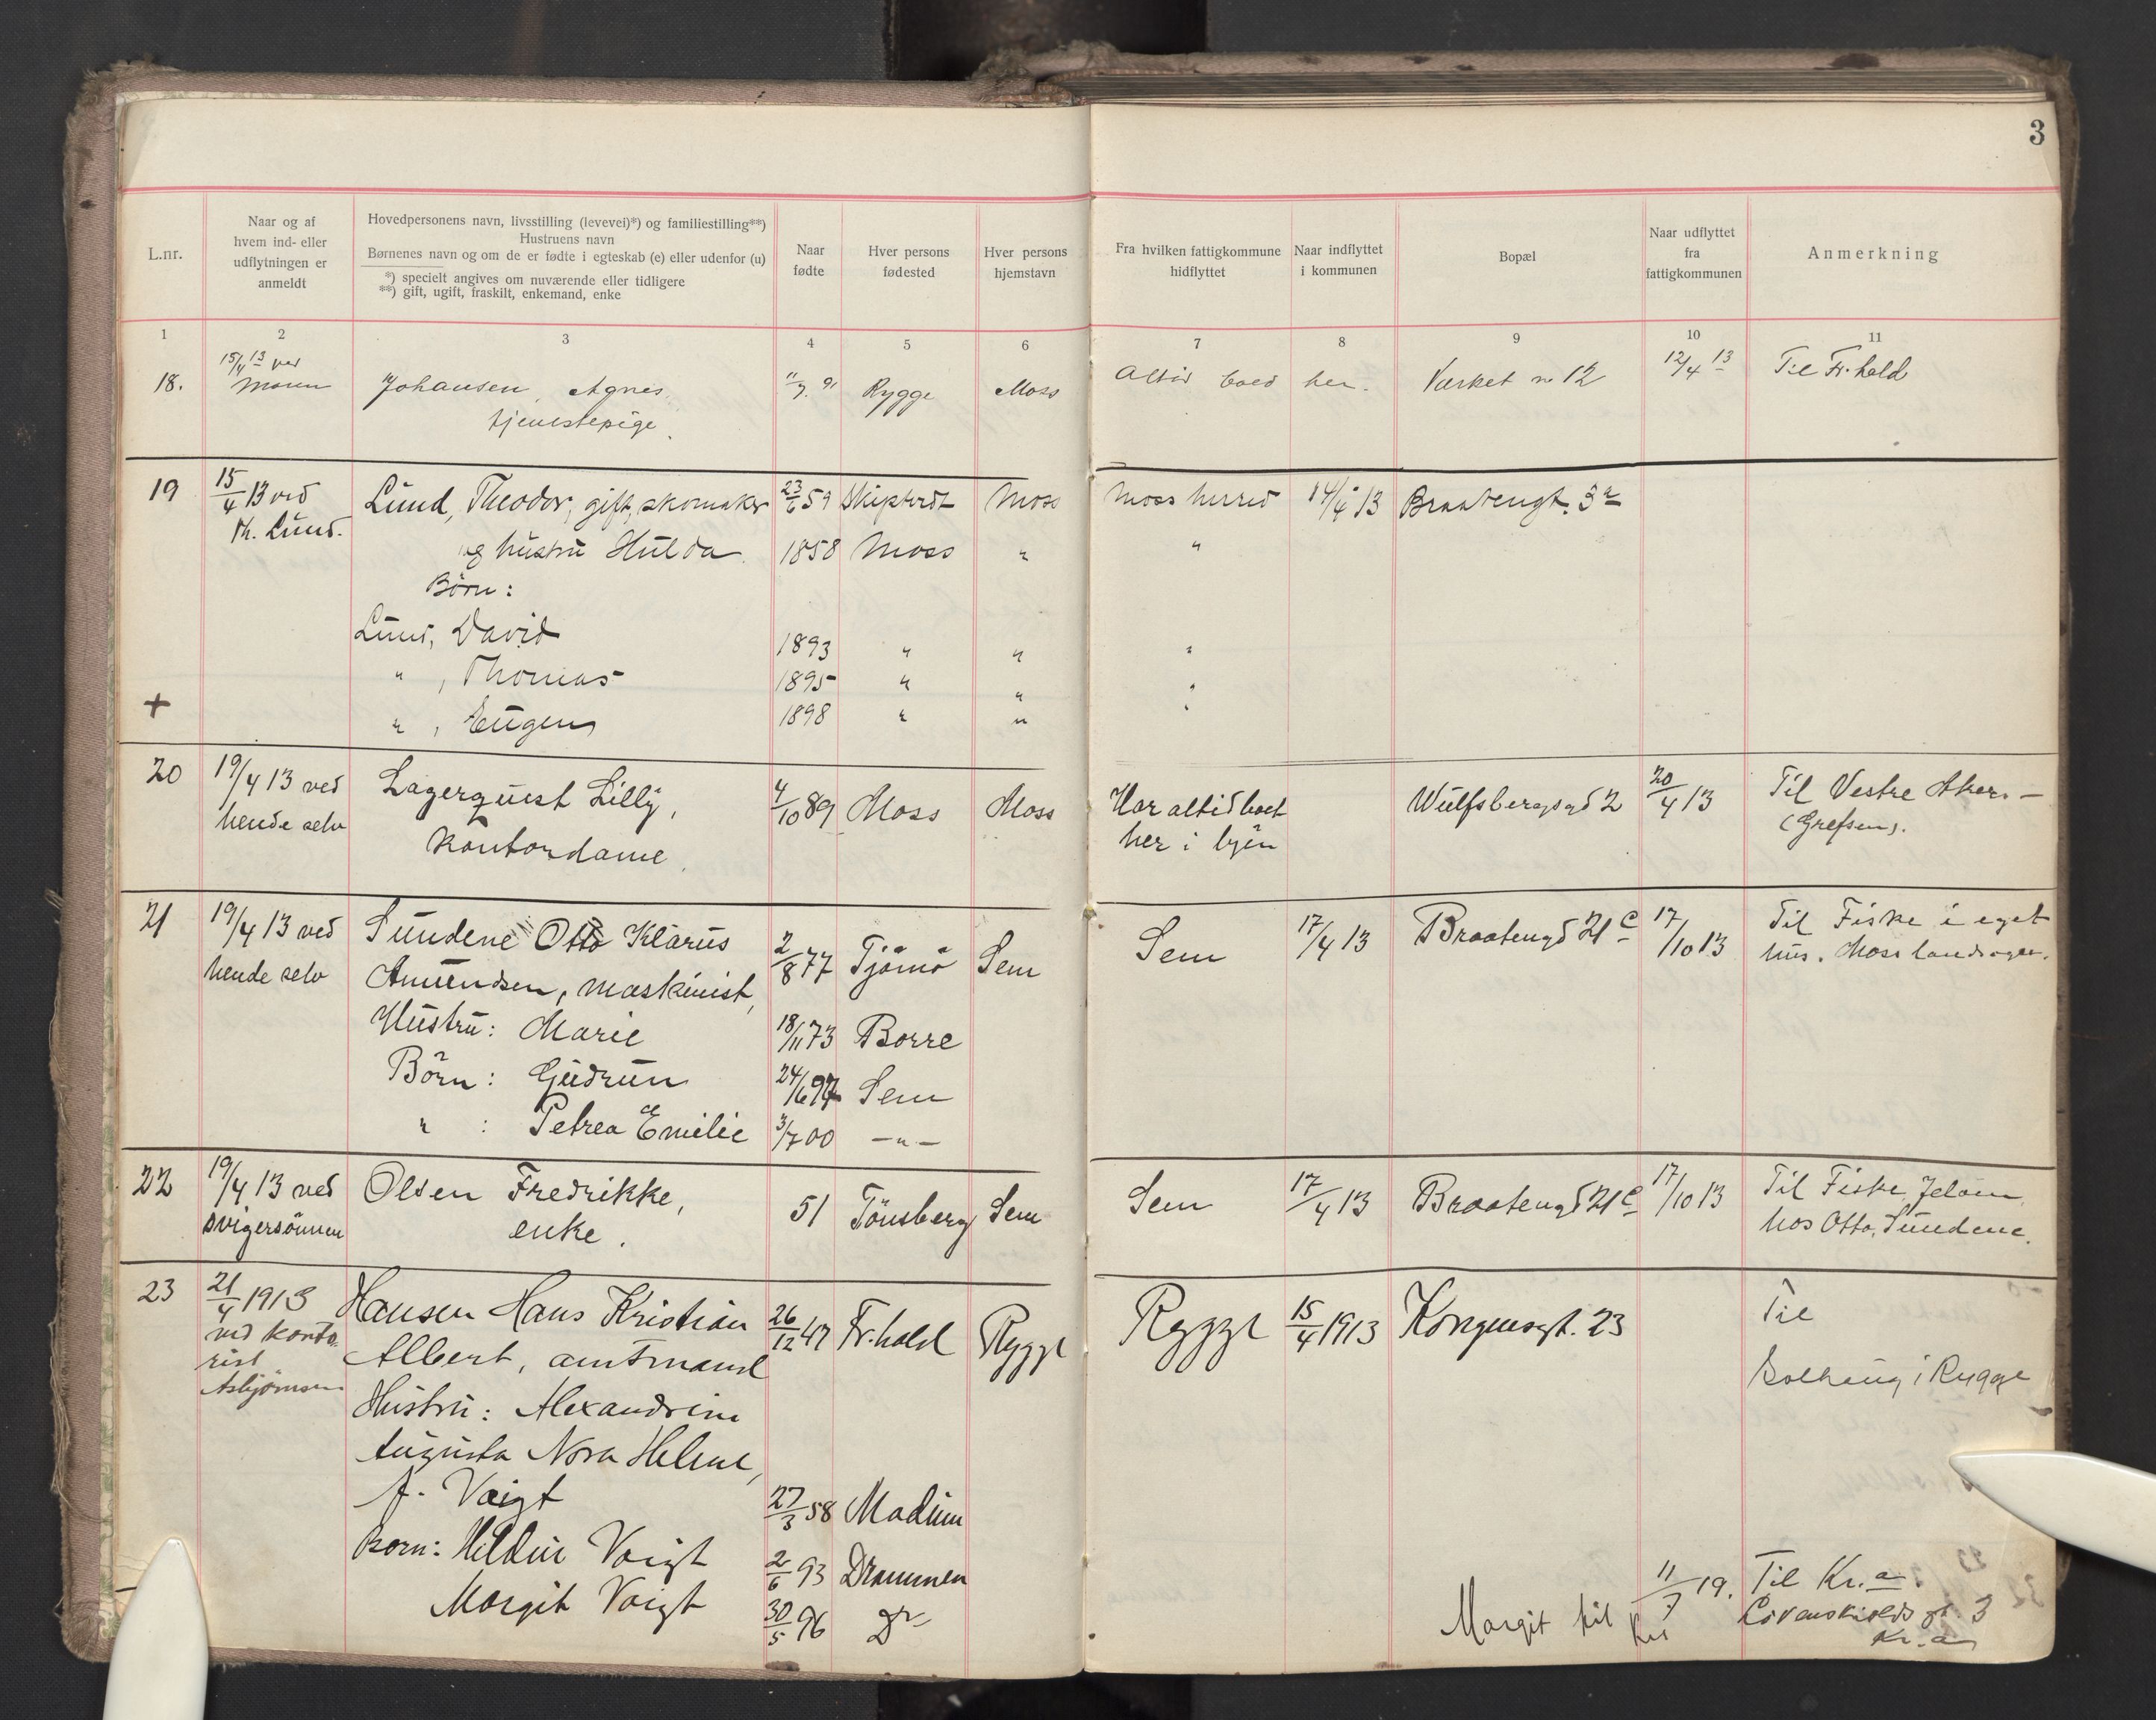 3
L.nr.
Naar og af
hvem ind- eller
udflytningen er
anmeldt
Hovedpersonens navn, livsstilling (levevei)*) og familiestilling**)
Hustruens navn
Børnenes navn og om de er fødte i egteskab (e) eller udenfor (u)
*) specielt angives om nuværende eller tidligere
**) gift, ugift, fraskilt, enkemand, enke
Naar
fødte
Hver persons
fødested
Hver persons
hjemstavn
Fra hvilken fattigkommune
hidflyttet
Naar indflyttet
i kommunen
Bopæl
Naar udflyttet
fra
fattigkommunen
Anmerkning
1 2 3 4 5 6 7 8 9 10 11
15/4 13 ved
18. moren Johansen, Agnes. 11/7. 91 Rygge Moss Altid boed her. Værket no 12 12/4 13 Til Fr.hald
tjenestepige.
19 15/4 13 ved Lund, Theodor, gift, skomaker 23/6 59 Skiptvedt Moss Moss herred 14/4 13 Braatengt. 3a
Th. Lund.
og hustru Hulda. 1858 Moss " "
Børn:
Lund, David 1893 " " "
" , Thomas 1895 " " "
+ " , Eugen 1898 " " "
20 19/4 13 ved Lagerquest Lilly, 4/10 89 Moss Moss Har altid boet Wulfsbergsgd 2 20/4 13 Til Vestre Aker. —
hende selv kontordame. her i byen (Grefsen).
21 19/4 13 ved Sundene Otto Klarus 2/8 77 Tjømø Sem Sem 17/4 13 Braatengd 21c 17/10 13 Til Fiske i eget
hende selv Amundsen, maskinist, hus. Moss landsogn.
Hustru: Marie 18/11 73 Borre
Børn: Gudrun 24/6 97 Sem
" : Petrea Emilie 3/7 00 — " —
22 19/4 13 ved Olsen Fredrikke, 51 Tönsberg Sem Sem 17/4 13 Braatengd 21c 17/10 13 Til Fiske, Jeløen
svigersönnen enke. hos Otto Sundene.
23 21/4 1913 Hansen Hans Kristian 26/12 47 Fr.hald Rygge Rygge 15/4 1913 Kongensgt. 23 Til
ved konto-
rist Albert, amtmand Solhaug i Rygge
Asbjørnsen
Hustru: Alexandrine
Augusta Nora Helene,
f. Voigt 27/3 58 Modum
Børn: Hildur Voigt 2/6 93 Drammen
Margit Voigt 30/5 96 do
Margit til Kra 11/7 19. Til Kr.a.
Løvenskiolds gt. 3
Kr.a